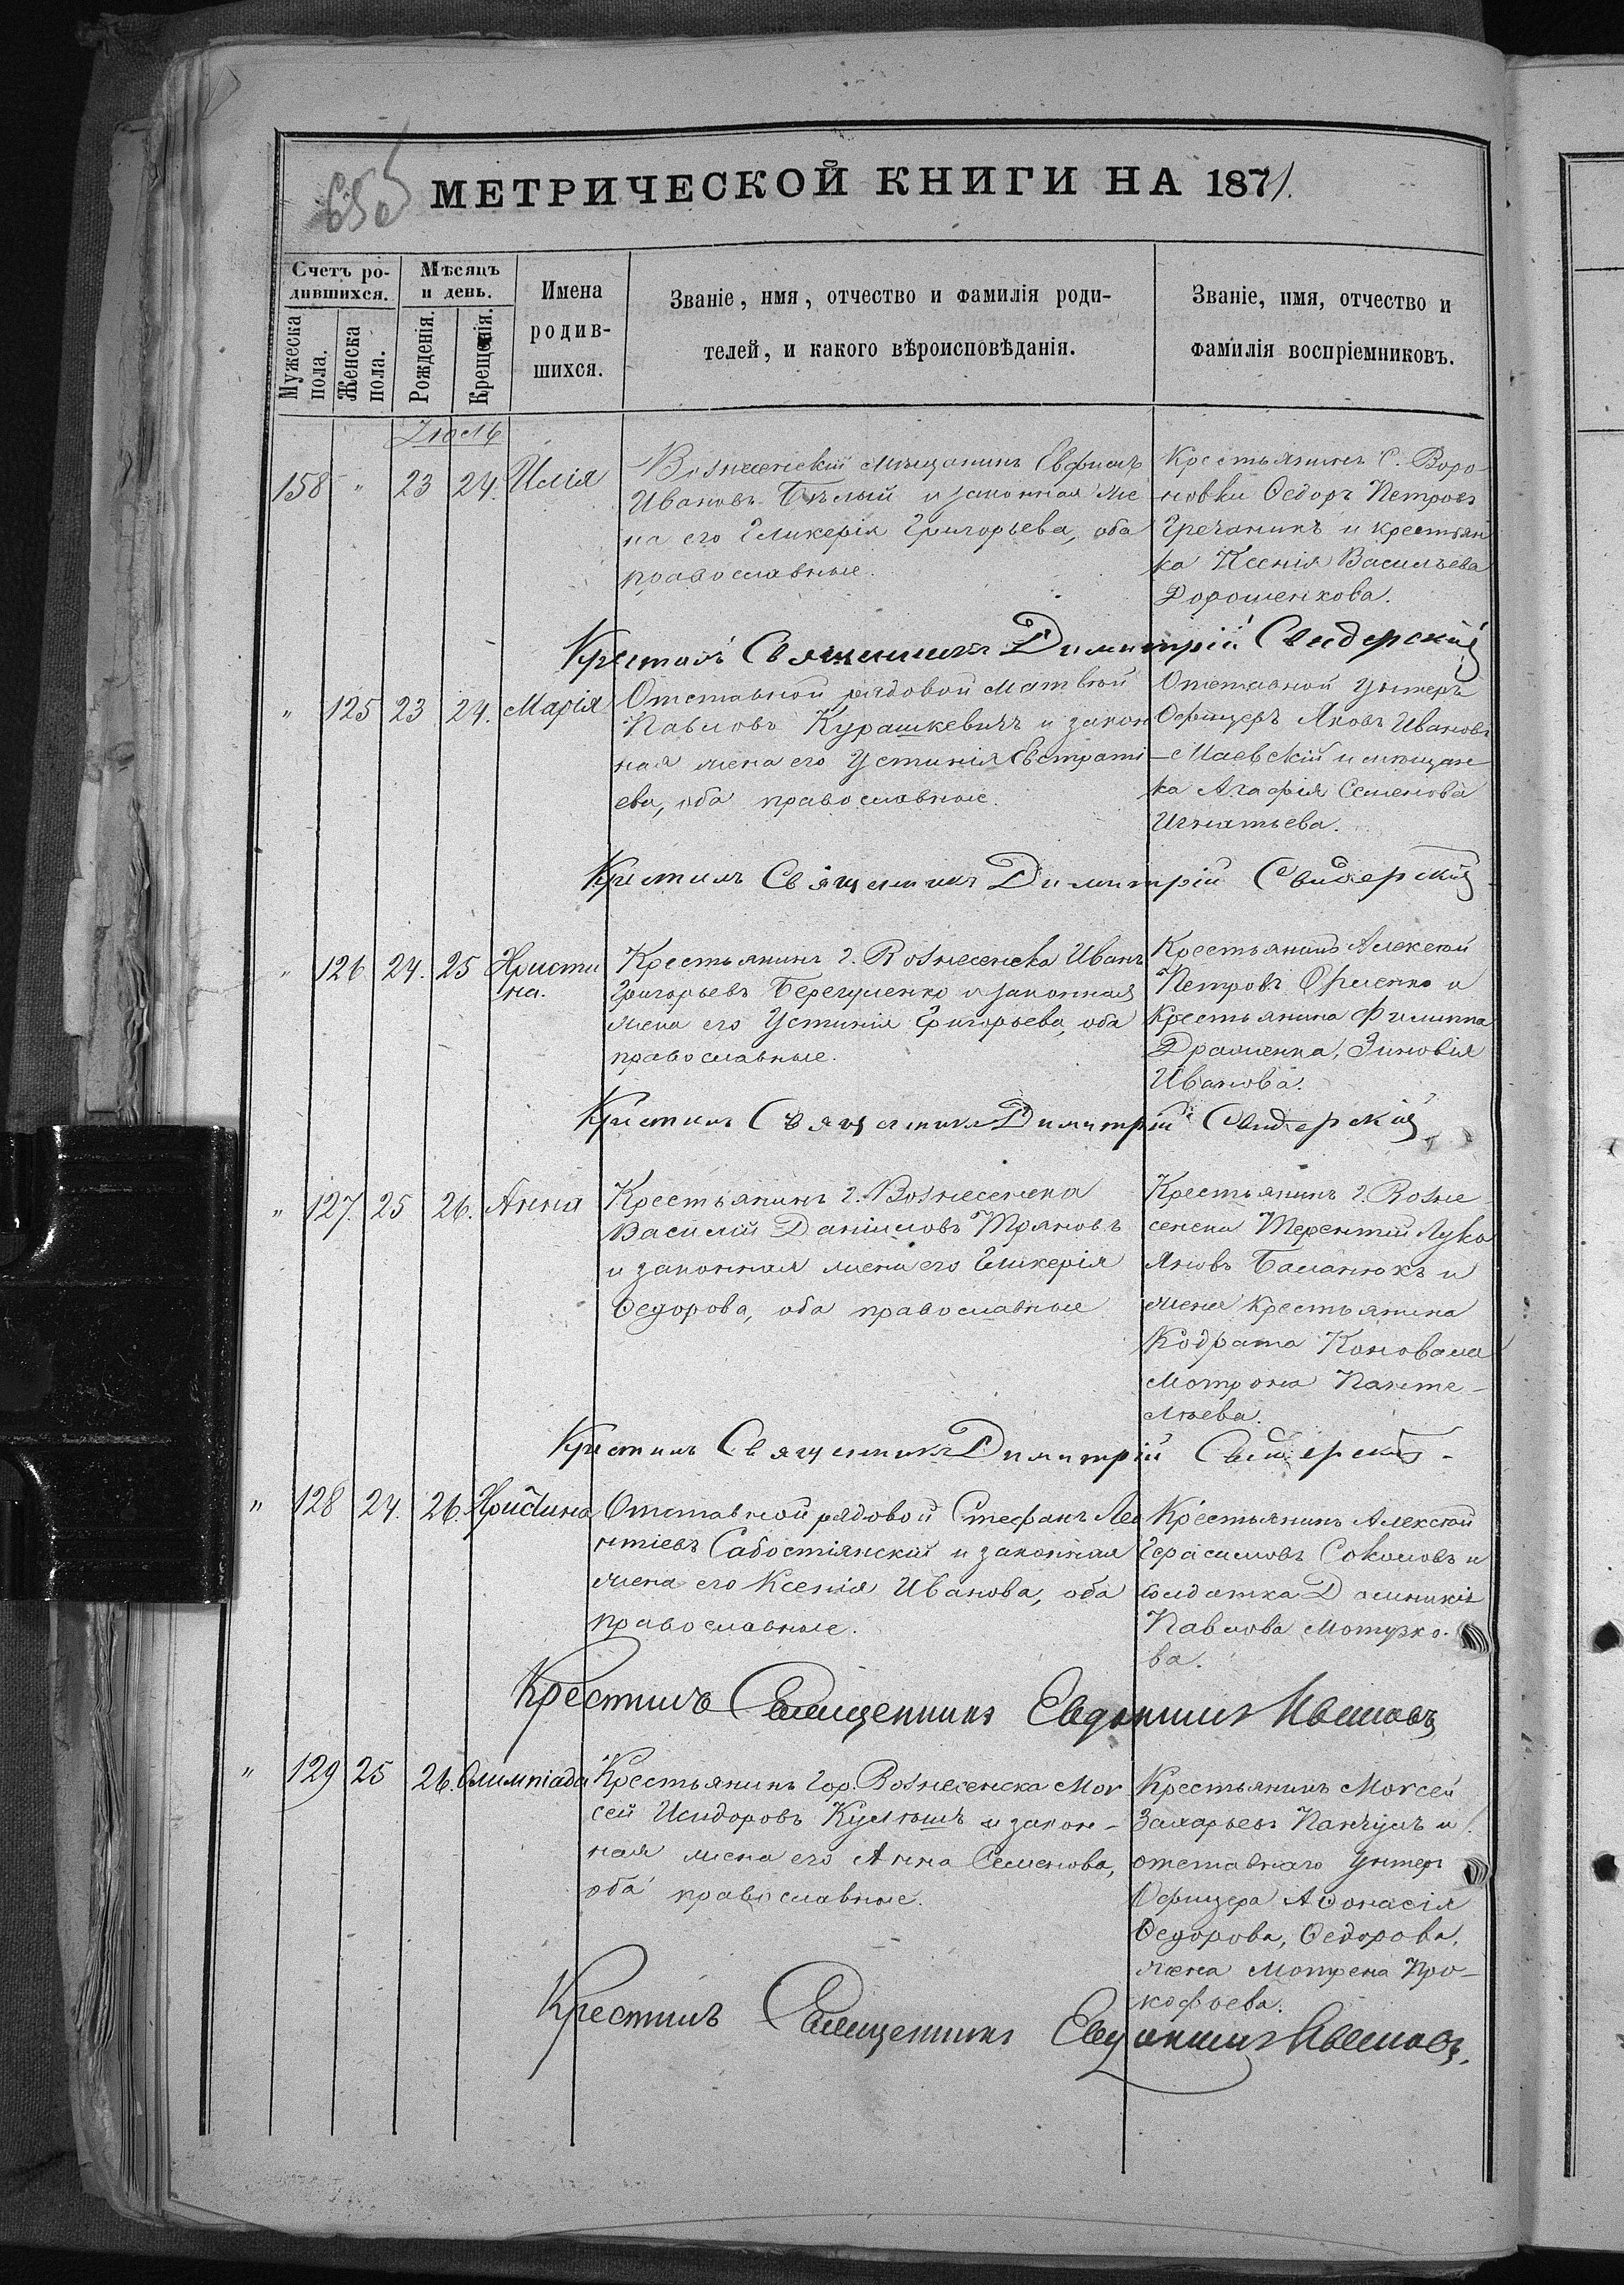 655
МЕТРИЧЕСКОЙ КНИГИ НА 1871.
Счетъ ро-
дившихся.
Мужеска
пола.
Женска
пола.
Мѣсяцъ
и день.
Рожденія.
Крещенія.
Имена
родив-
шихся.
Званіе, имя, отчество и фамилія роди-
телей, и какого вѣроисповѣданія.
Званіе, имя, отчество и
фамилія воспріемниковъ.
Іюль
158 " 23 24. Илія
Вознесенскій мѣщанинъ Евфимъ
Ивановъ Бѣлый и законная же
на его Гликерія Григорьева, оба
православные.
Крестьянинъ С. Воро-
новки Ѳедоръ Петровъ
Гречанинъ и крестьян
ка Ксенія Васильева
Дорошенкова.
Крестилъ Священникъ Димитрій Свидерскій
" 125 23 24. Марія
Отставной рядовой Матвѣй
Павловъ Курашкевичъ и закон
ная жена его Устинія Евстраті
ева, оба православные.
Отставной Унтеръ
Офицеръ Яковъ Ивановъ
Маевскій и мѣщан-
ка Агафія Семенова
Игнатьева.
Крестилъ Священникъ Димитрій Свидерскій
" 126 24. 25 Христи
на.
Крестьянинъ г. Вознесенска Иванъ
Григорьевъ Берегуленко и законная
жена его Устинія Григорьева, оба
православные.
Крестьянинъ Алексѣй
Петровъ и
Крестьянина Филиппа
Зиновія
Иванова.
Крестилъ Священникъ Димитрій Свидерскій
" 127. 25 26. Анна
Крестьянинъ г. Вознесенска
Василій Даніиловъ Трояновъ
и законная жена его Гликерія
Ѳедорова, оба православные
Крестьянинъ г. Возне
сенска Терентій Лукь
яновъ Баланюкъ и
жена Крестьянина
Кодрата Коновала
Мотрона Панте-
лѣева.
Крестилъ Священникъ Димитрій Свидерскій
" 128 24. 26. Христина
Отставной рядовой Стефанъ Лео
нтіевъ Сабостіянскій и законная
жена его Ксенія Иванова, оба
православные.
Крестьянинъ Алексѣй
Герасимовъ Соколовъ и
солдатка Домникія
Павлова Мотузко-
ва.
Крестилъ Священникъ Евдокимъ Ивановъ
" 129 25 26. Олимпіада
Крестьянинъ гор. Вознесенска Мои
сей Исидоровъ Кулышъ и закон-
ная жена его Анна Семенова,
оба православные.
Крестьянинъ Моисей
Захарьевъ Панчулъ и
отставнаго Унтеръ
Офицера Аѳонасія
Ѳедорова, Ѳедорова,
жена Мотрена Про-
кофьева.
Крестилъ Священникъ Евдокимъ Ивановъ.